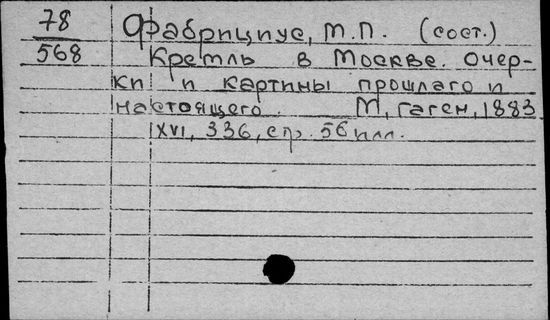 78 Фабрициус, М.П. (сост.)
568 Кремль в Москве. Очер-
ки и картины прошлаго и
настоящего. М, Гаген, 1883
XVI, 336, стр. 56 илл.